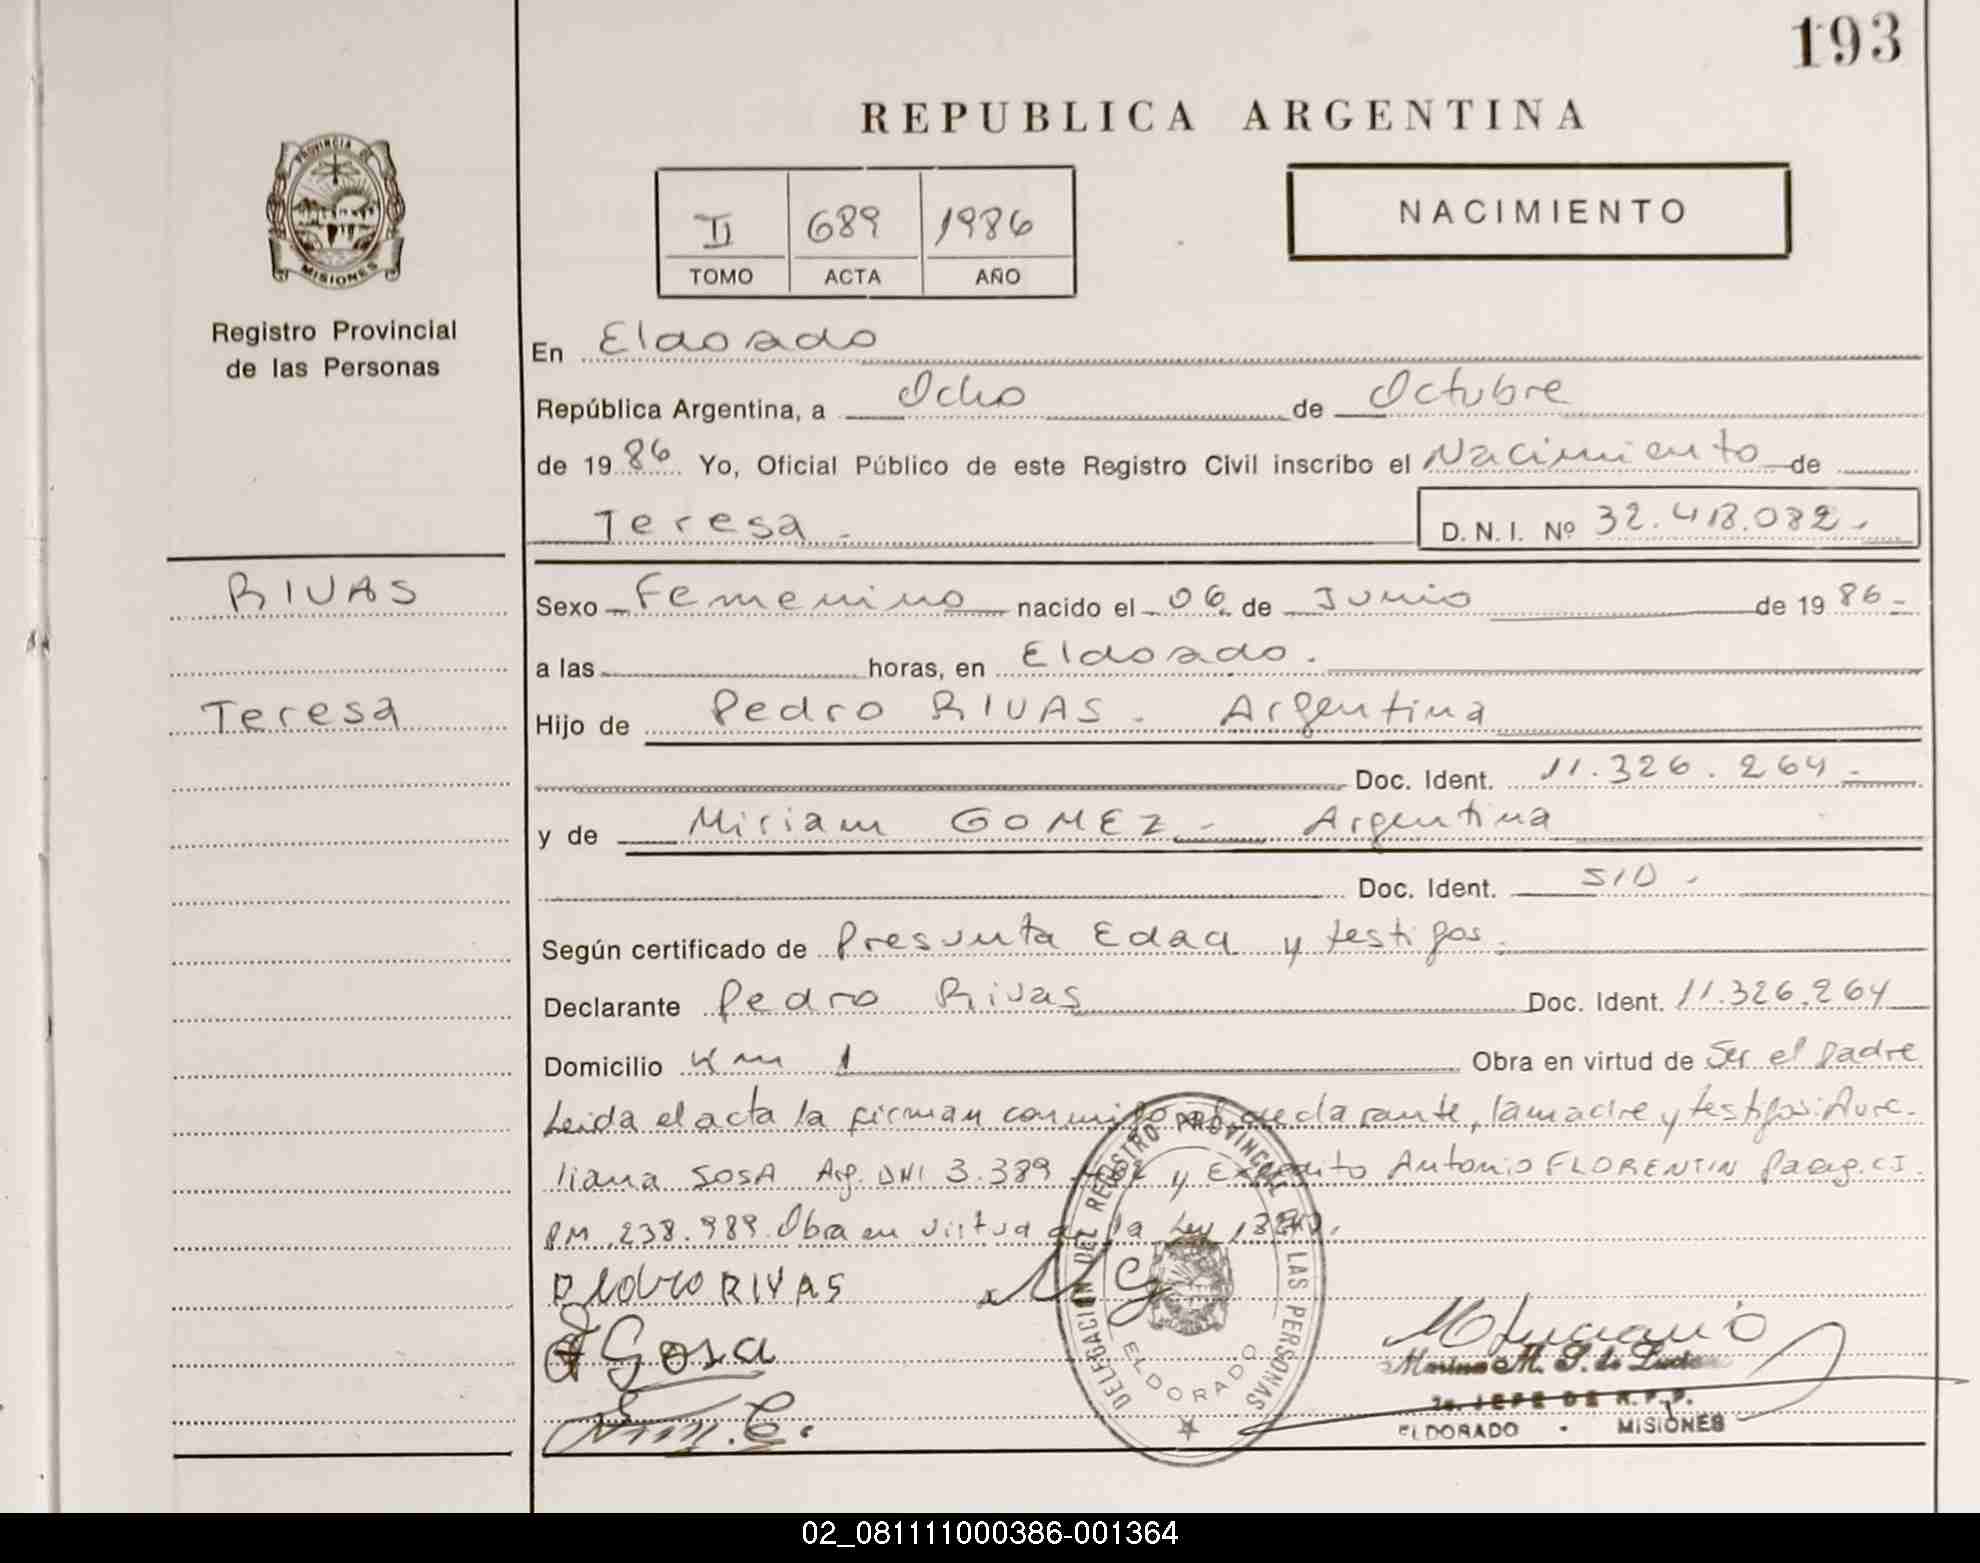 193
REPUBLICA ARGENTINA
PROVINCIA DE
MISIONES
Registro Provincial
de las Personas
II 689 1986
TOMO ACTA AÑO
NACIMIENTO
En Eldorado
República Argentina, a Ocho de Octubre
de 1986 Yo, Oficial Público de este Registro Civil inscribo el Nacimiento de
Teresa.- D. N. I. Nº 32.418.082.-
RIVAS
Sexo Femenino nacido el 06 de Junio de 1986.-
a las horas, en Eldorado.
Teresa
Hijo de Pedro RIVAS. Argentina
Doc. Ident. 11.326.264.-
y de Miriam GOMEZ.- Argentina
Doc. Ident. S/D.
Según certificado de Presunta Edad y testigos.
Declarante Pedro Rivas Doc. Ident. 11.326.264
Domicilio Km 1 Obra en virtud de Ser el padre
Leida el acta la firman conmigo el declarante, la madre y testigos: Aure-
liana SOSA Arg. DNI 3.389. y Antonio FLORENTIN Parag. CI.
PM 238.989. Obra en virtud de la Ley
PEDRO RIVAS MG
A Sosa
DELEGACION DEL REGISTRO PROVINCIAL DE LAS PERSONAS
ELDORADO
M. S. de
JEFE DE R.P.P.
ELDORADO - MISIONES
02_081111000386-001364